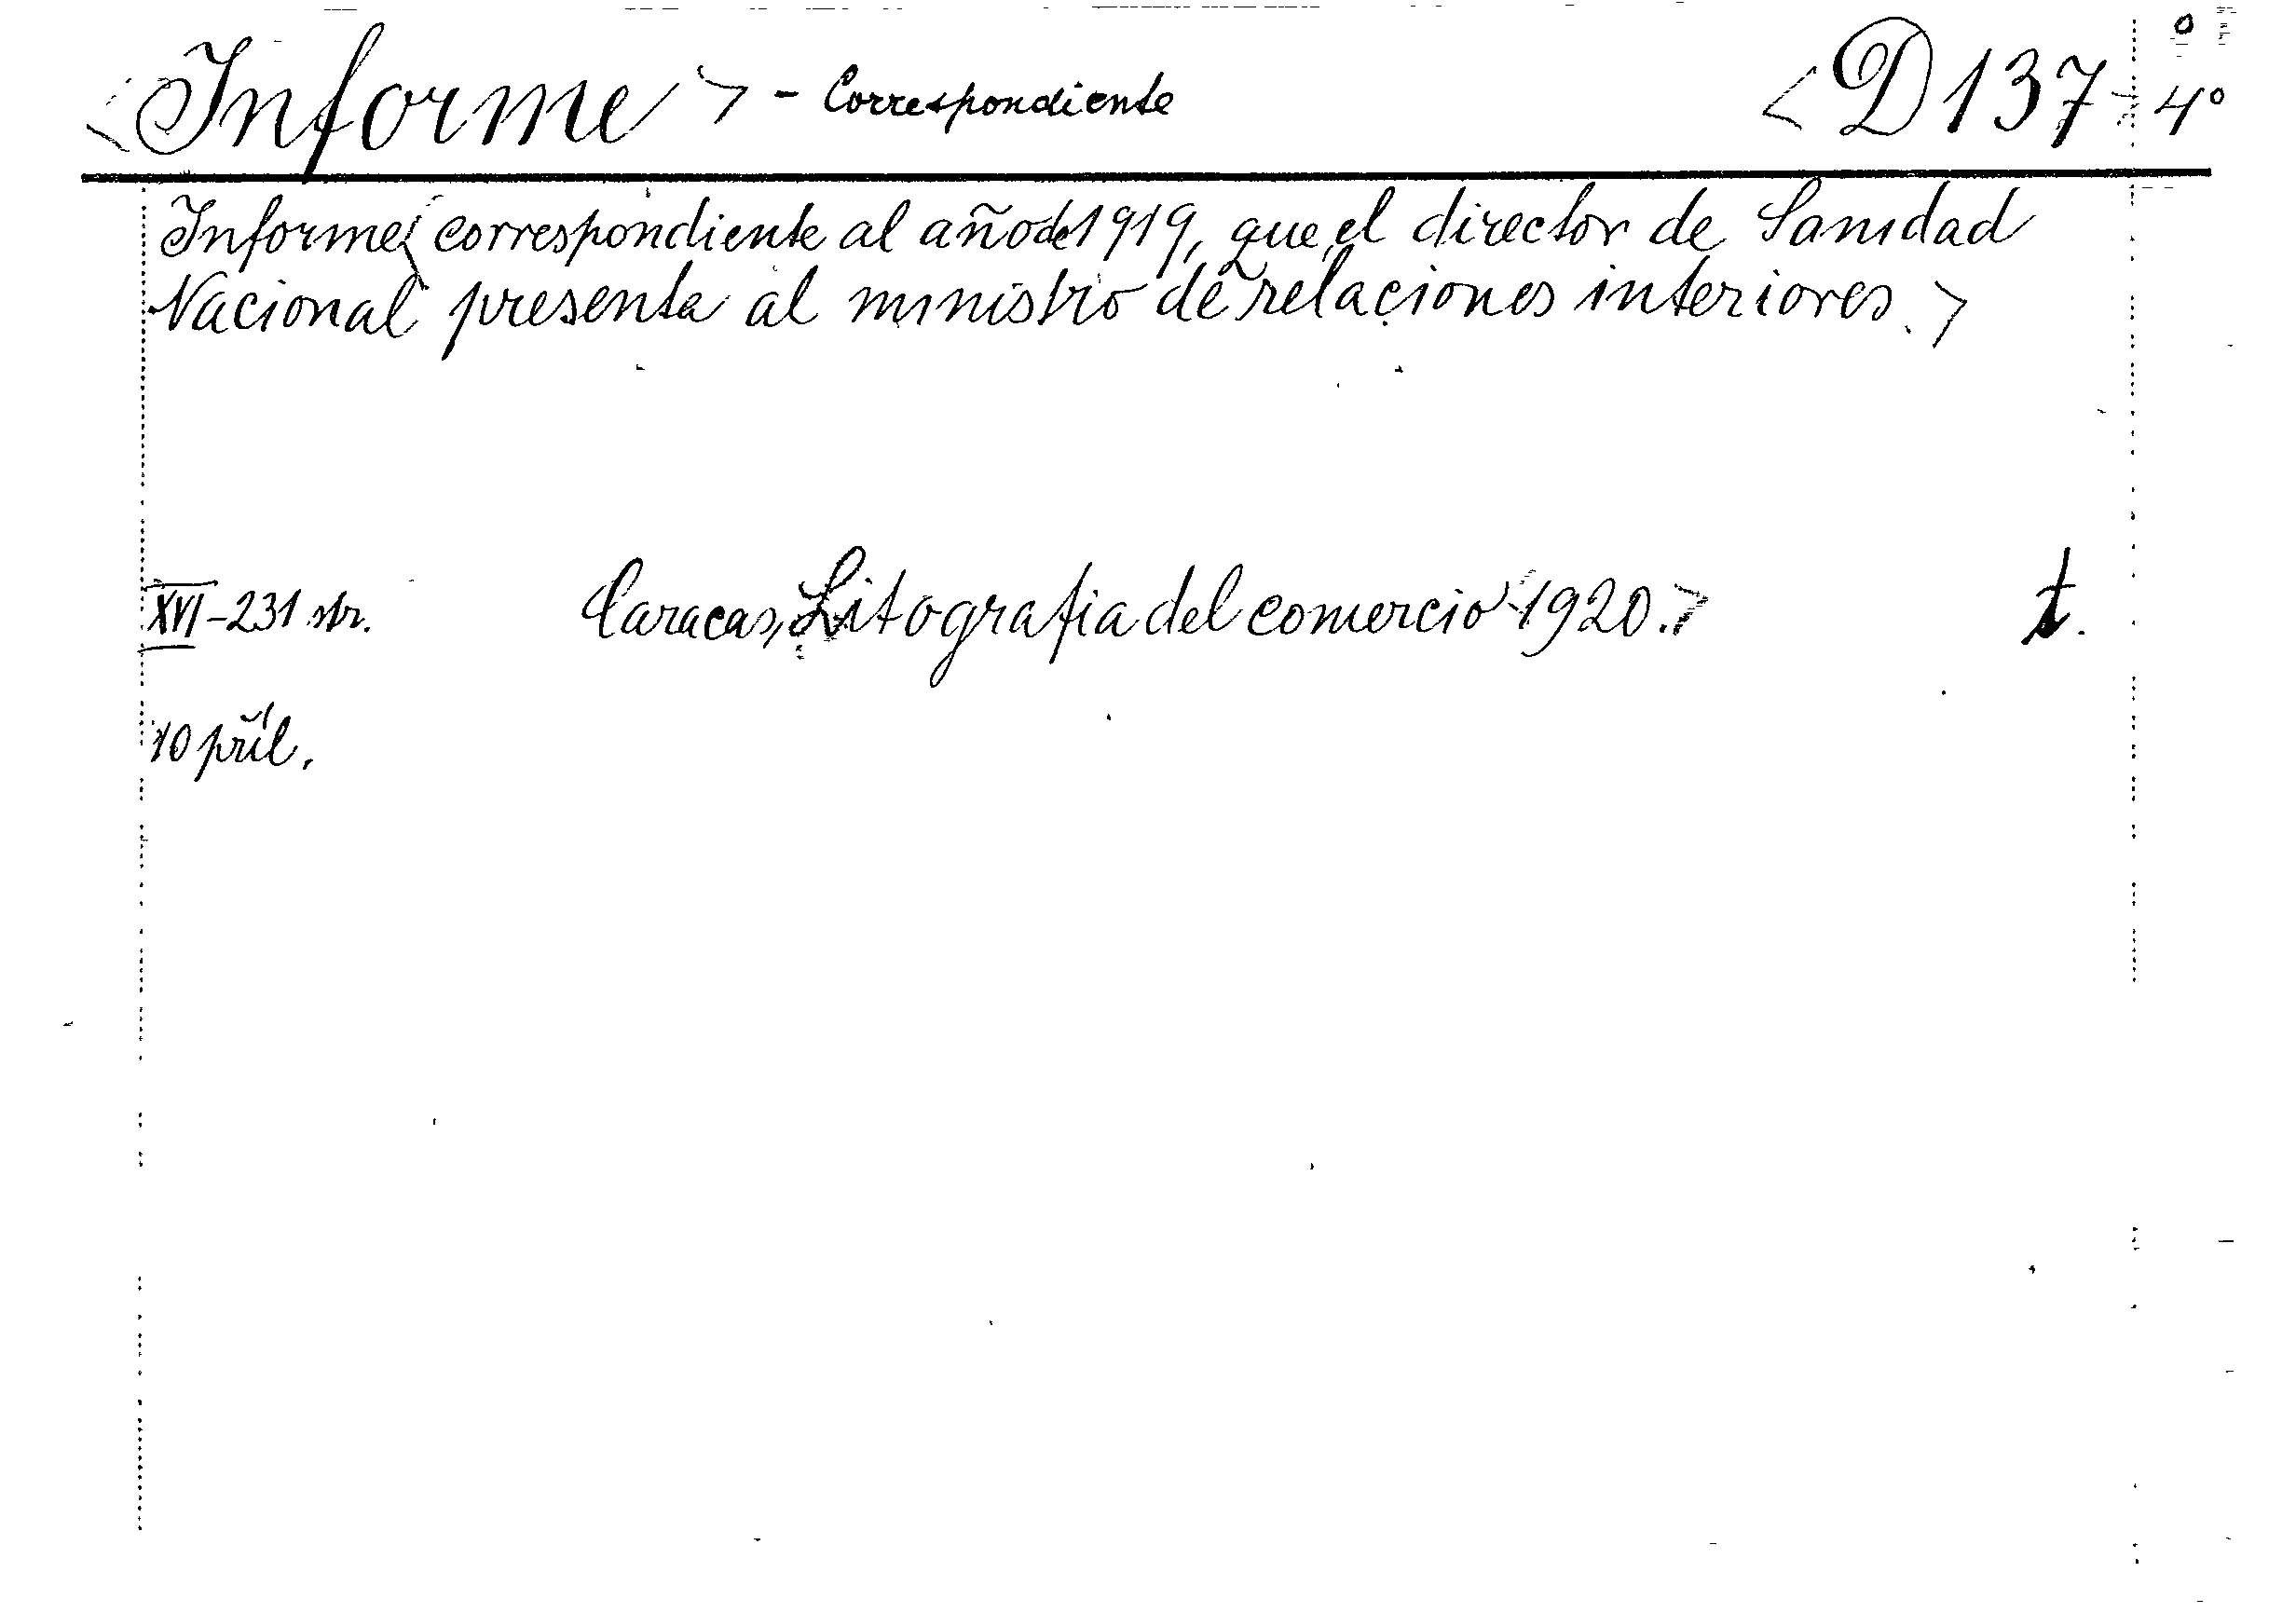 <Informe> - Correspondiente <D 137 4°
Informe correspondiente al año de 1919, que el director de Sanidad
Nacional presenta al ministrio de relaciones interiores.>
XVI-231 str. Caracas, Litografia del comercio 1920.> t.
10 příl.